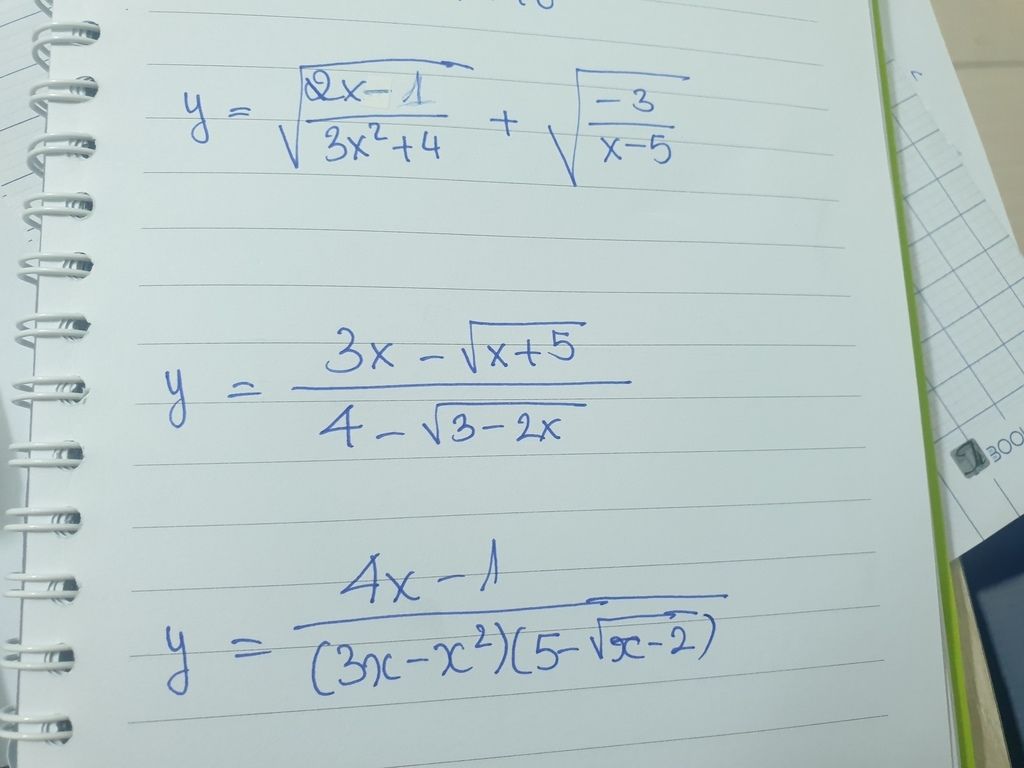 y = √((2x-1)/(3x²+4)) + √((-3)/(x-5))
y = (3x - √(x+5))/(4 - √(3-2x))
y = (4x-1)/((3x-x²)(5-√(x-2)))